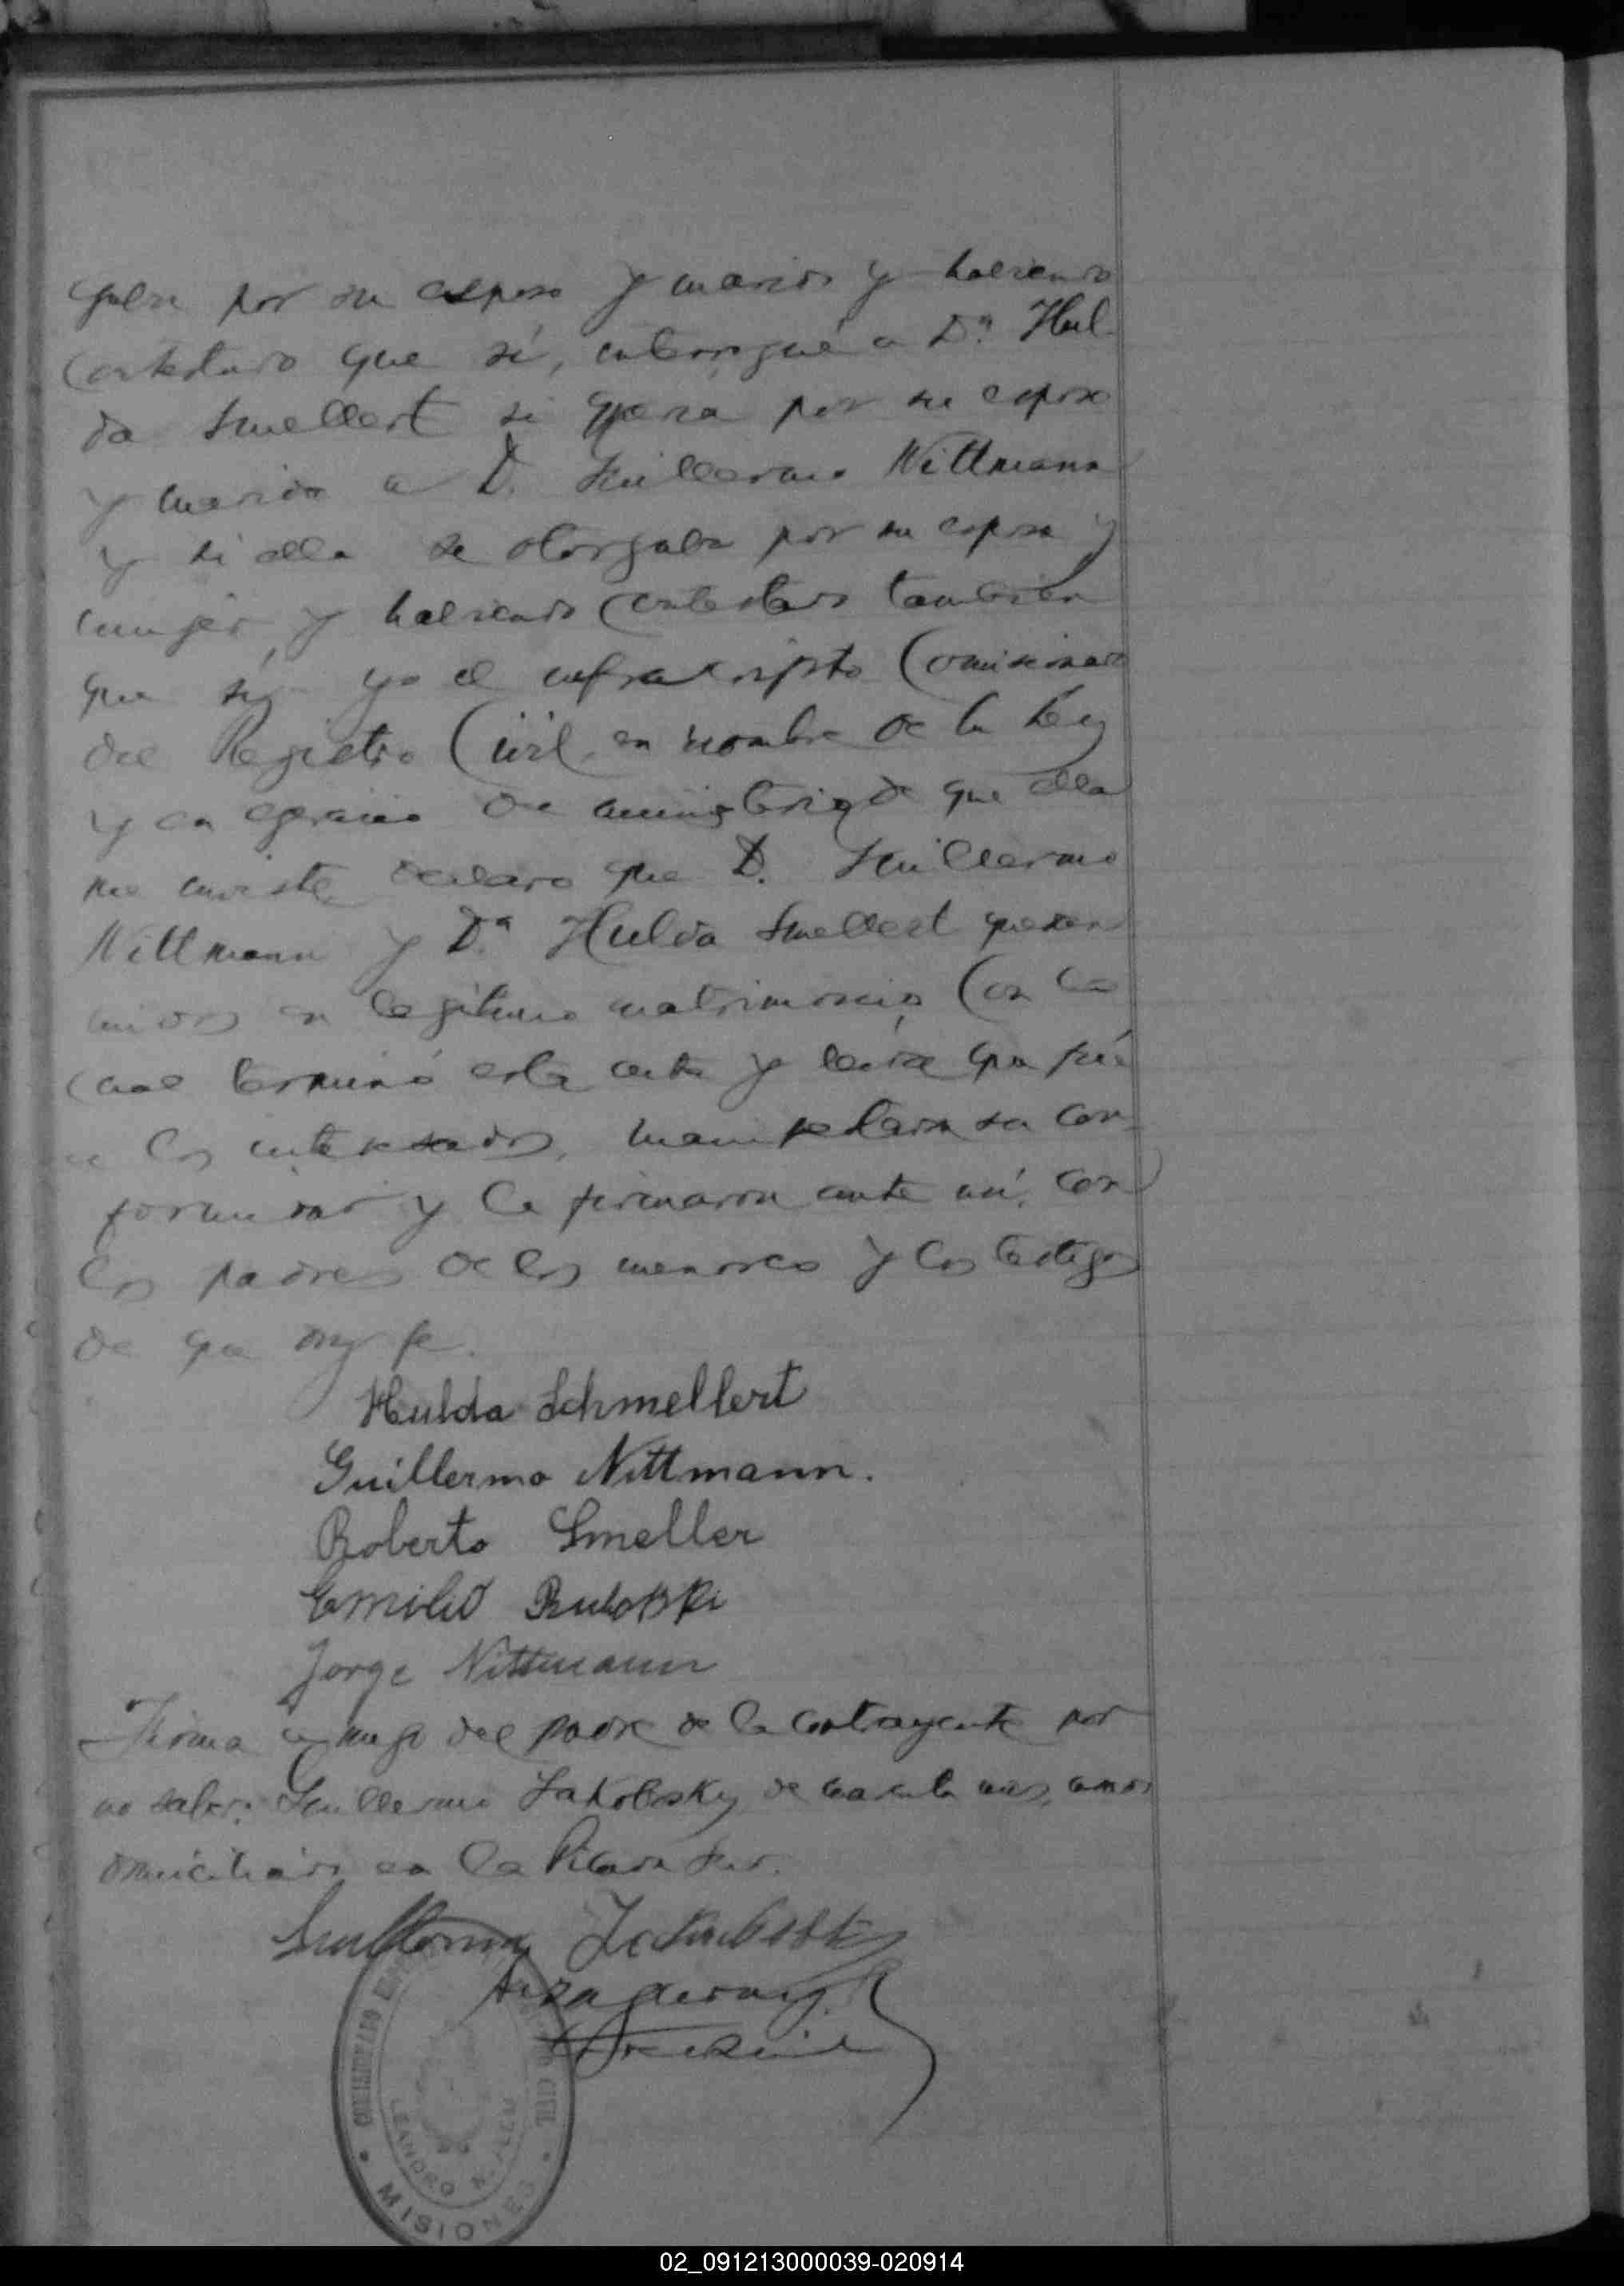 gaba por su esposo y marido y habiendo
contestado que sí, interrogué a Da. Hul
da Smellert si quería por su esposo
y marido a D. Guillermo Nittmann
y si ella se otorgaba por su esposa y
mujer, y habiendo contestado también
que sí, yo el infrascripto Comisionado
del Registro Civil, en nombre de la Ley
y en ejercicio de ministerio de que ella
me inviste declaro que D. Guillermo
Nittmann y Da. Hulda Smellert quedan
unidos en legítimo matrimonio, con lo
cual terminó esta acta y leída que fué
a los interesados, manifestaron su con-
formidad y la firmaron ante mí, con
los padres de los menores y los testigos
de que doy fe.
Hulda Schmellert
Guillermo Nittmann.
Roberto Smeller
Emilio
Jorge Nittmann
Firma a ruego del padre de la contrayente por
no saber: Guillermo Jakobosky, de años,
domiciliado en la Picada Sur.
Guillermo
COMISIONADO CIVIL
LEANDRO N. ALEM
MISIONES
02_091213000039-020914